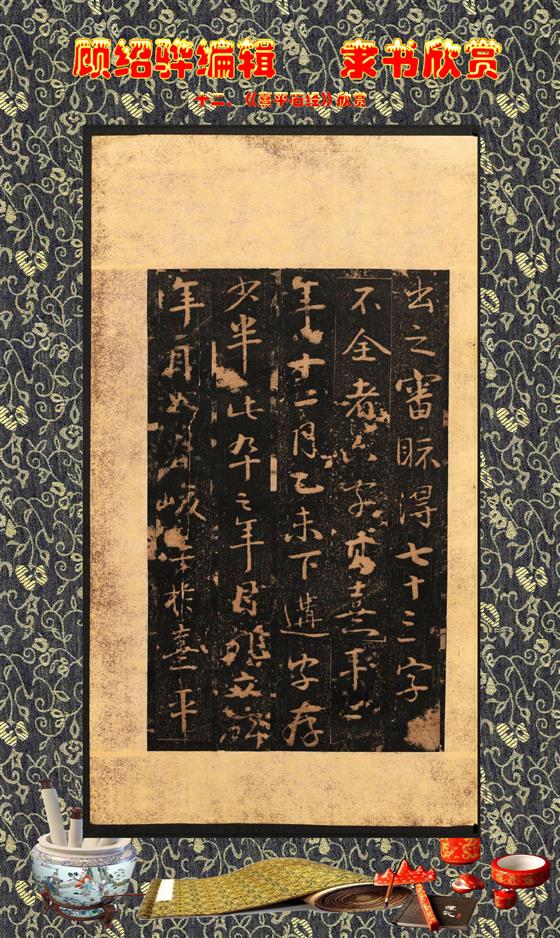 顾绍骅编辑 隶书欣赏
十二、《熹平石经》欣赏
出之審眎得七十三字
不全者六字 熹平二
年十一月乙未下遘字存
少半此卒之年月 立碑
年月 平